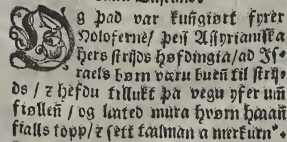 Og þad var kungiørt fyrer
Holoferne/ þeim Assyrianska
hers strijds høfdingia/ ad Js-
raels børn væru buen til strij-
ds / z hefdu tillukt þa vegu yfer um
fiøllen / og lated mura hvørn háán
fialls topp/ z sett a merkurn⸗.